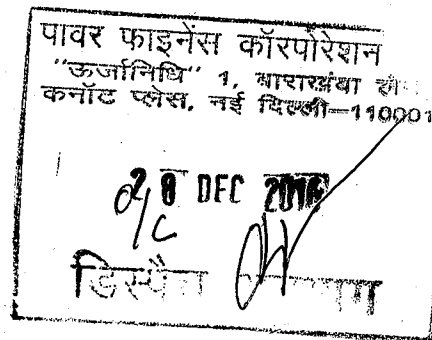 पावर फाइनेंस कॉरपोरेशन
"ऊर्जानिधि" 1, बाराखंबा
कनॉट प्लेस, नई दिल्ली—110001
28 DEC
डिस्पैच